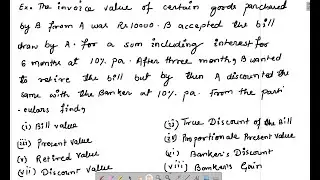 Ex. The invoice value of certain goods purchased
by B from A was Rs 10000. B accepted the bill
draw by A. for a sum including interest for
6 months at 10% pa. After three months, B wanted
to retire the bill but by then A discounted the
same with the Banker at 10% pa. From the parti
-culars find,
(i) Bill value (ii) True Discount of the Bill
(iii) Present Value (iv) Proportionate Present value
(v) Retired Value (vi) Banker's Discount
(vii) Discount Value (viii) Banker's Gain